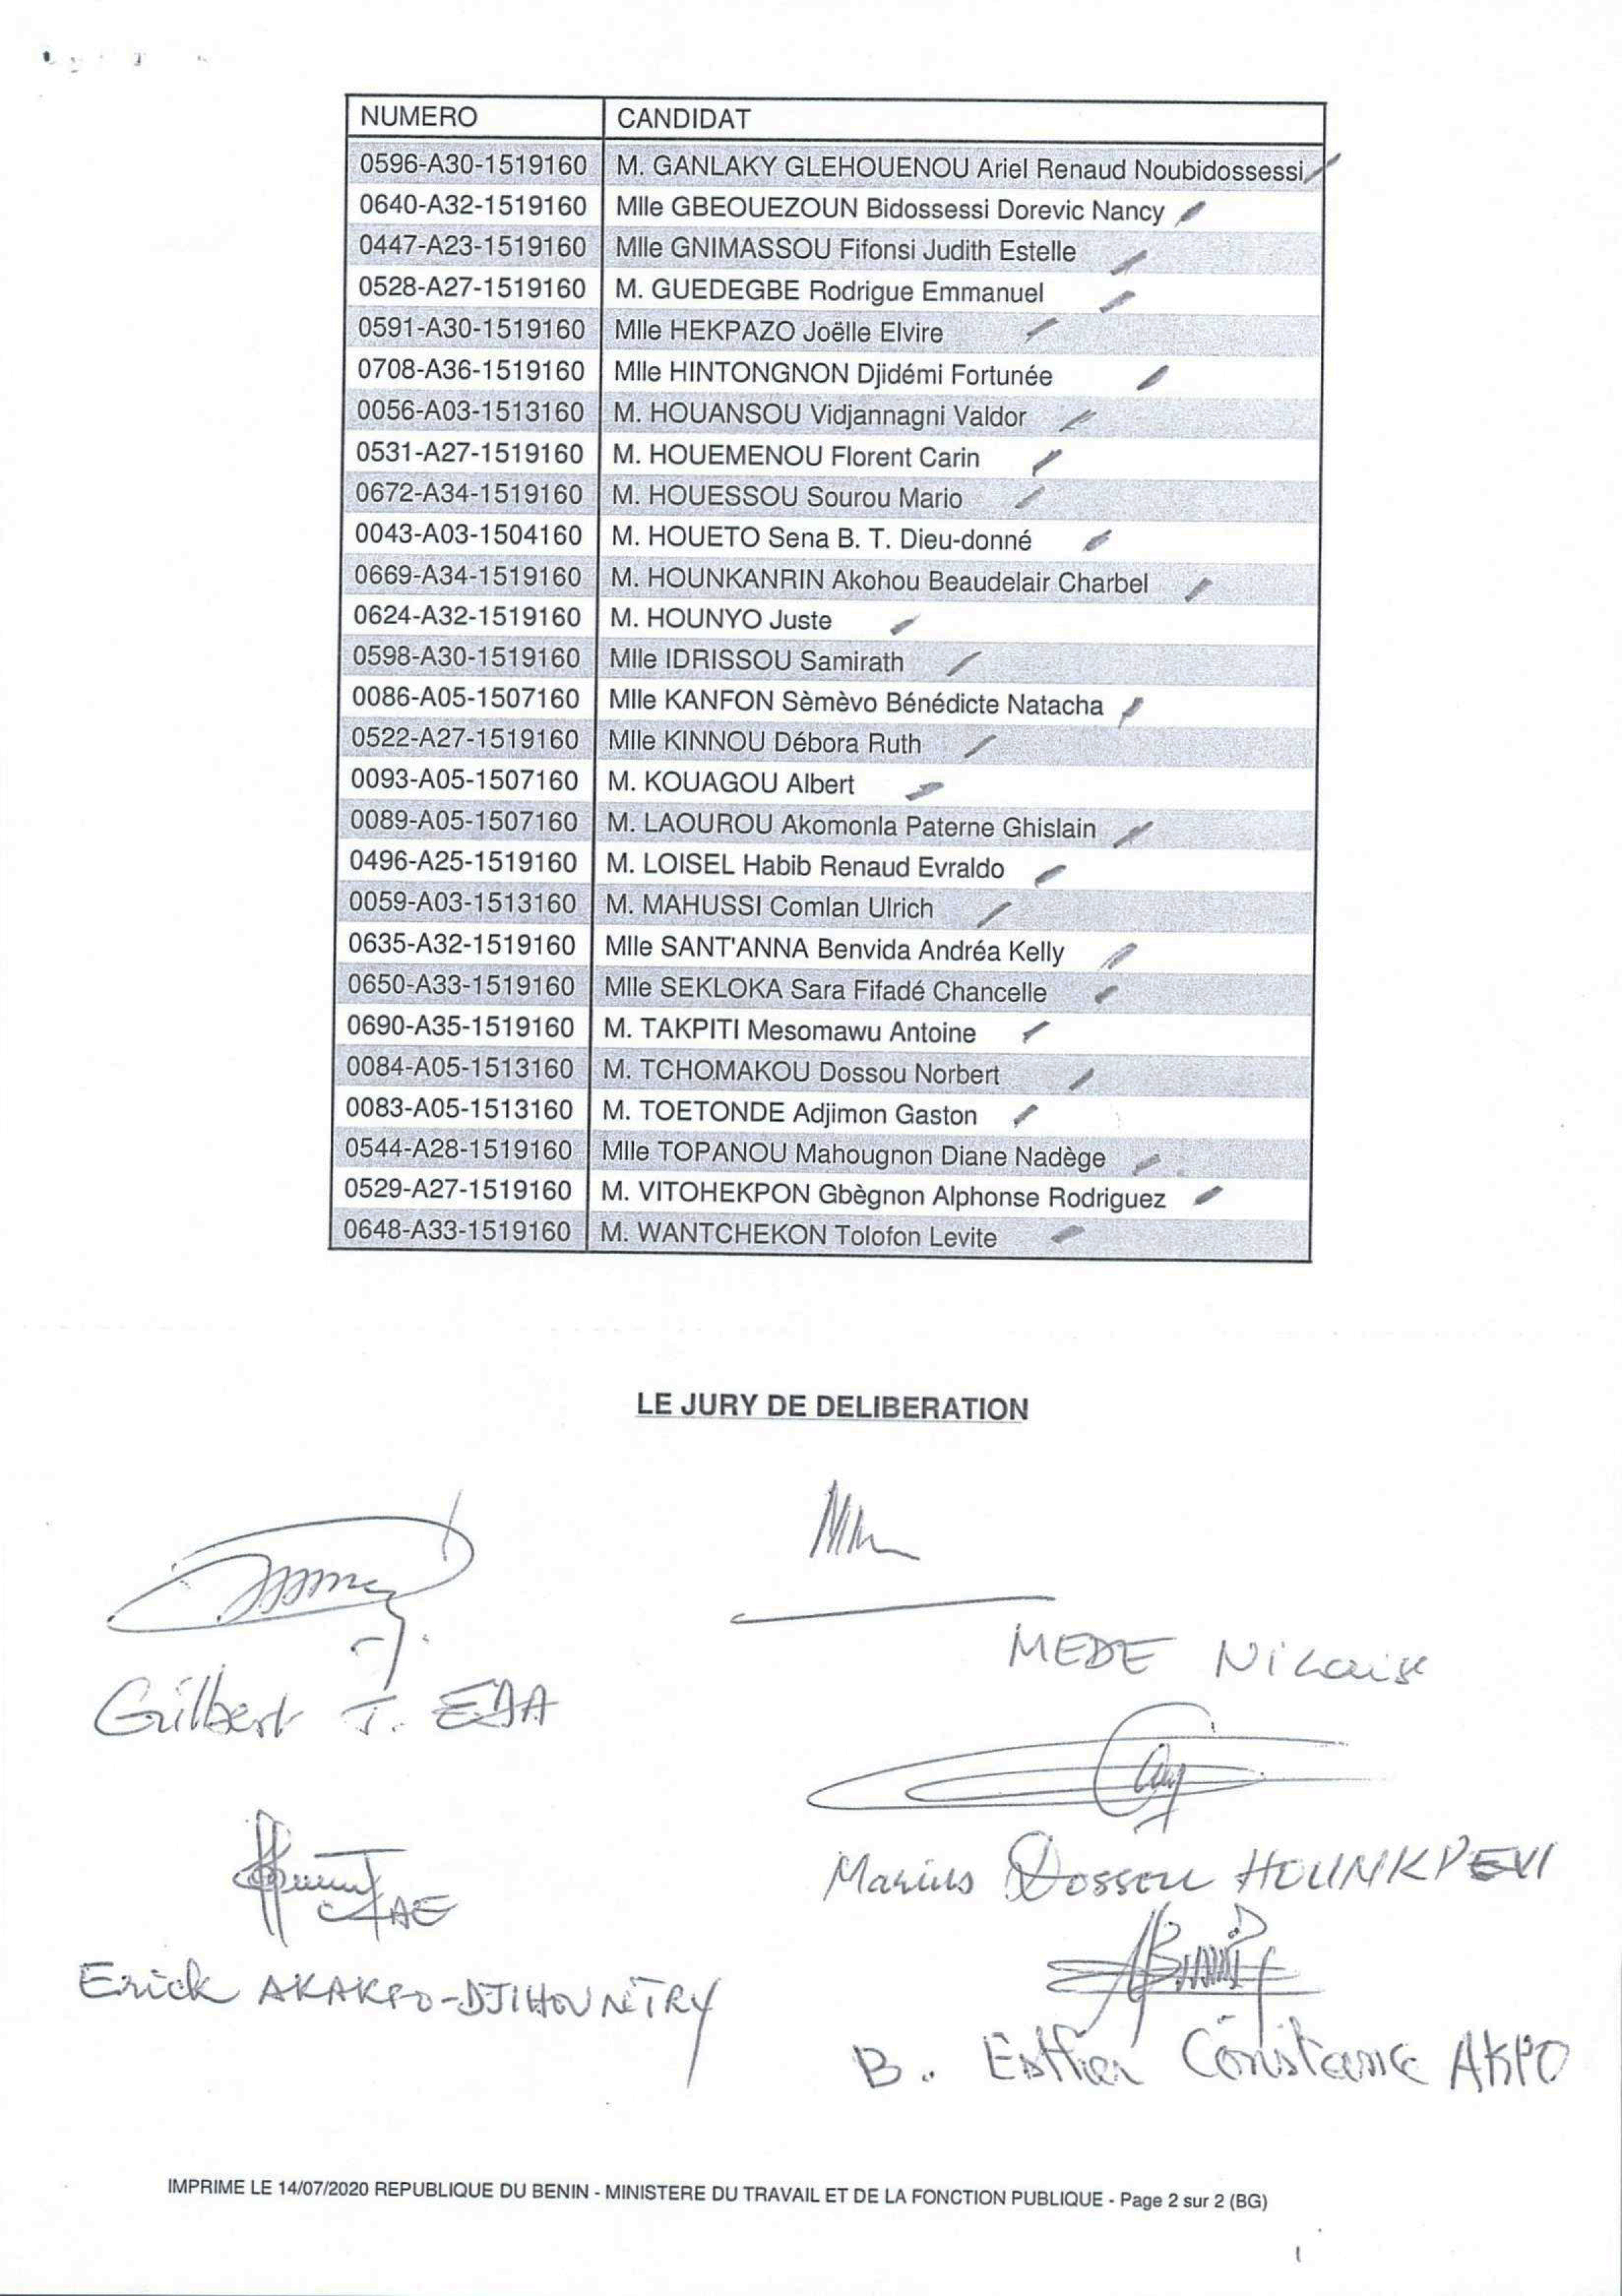 NUMERO CANDIDAT
0596-A30-1519160 M. GANLAKY GLEHOUENOU Ariel Renaud Noubidossessi
0640-A32-1519160 Mlle GBEOUEZOUN Bidossessi Dorevic Nancy
0447-A23-1519160 Mlle GNIMASSOU Fifonsi Judith Estelle
0528-A27-1519160 M. GUEDEGBE Rodrigue Emmanuel
0591-A30-1519160 Mlle HEKPAZO Joëlle Elvire
0708-A36-1519160 Mlle HINTONGNON Djidémi Fortunée
0056-A03-1513160 M. HOUANSOU Vidjannagni Valdor
0531-A27-1519160 M. HOUEMENOU Florent Carin
0672-A34-1519160 M. HOUESSOU Sourou Mario
0043-A03-1504160 M. HOUETO Sena B. T. Dieu-donné
0669-A34-1519160 M. HOUNKANRIN Akohou Beaudelair Charbel
0624-A32-1519160 M. HOUNYO Juste
0598-A30-1519160 Mlle IDRISSOU Samirath
0086-A05-1507160 Mlle KANFON Sèmèvo Bénédicte Natacha
0522-A27-1519160 Mlle KINNOU Débora Ruth
0093-A05-1507160 M. KOUAGOU Albert
0089-A05-1507160 M. LAOUROU Akomonla Paterne Ghislain
0496-A25-1519160 M. LOISEL Habib Renaud Evraldo
0059-A03-1513160 M. MAHUSSI Comlan Ulrich
0635-A32-1519160 Mlle SANT'ANNA Benvida Andréa Kelly
0650-A33-1519160 Mlle SEKLOKA Sara Fifadé Chancelle
0690-A35-1519160 M. TAKPITI Mesomawu Antoine
0084-A05-1513160 M. TCHOMAKOU Dossou Norbert
0083-A05-1513160 M. TOETONDE Adjimon Gaston
0544-A28-1519160 Mlle TOPANOU Mahougnon Diane Nadège
0529-A27-1519160 M. VITOHEKPON Gbègnon Alphonse Rodriguez
0648-A33-1519160 M. WANTCHEKON Tolofon Levite
LE JURY DE DELIBERATION
MEDE Nikaise
Gilbert T. EDA
Marius Dossou HOUNKPEVI
Erick AKAKPO-DJIHOUNTRY
B. Esther Constance AKPO
IMPRIME LE 14/07/2020 REPUBLIQUE DU BENIN - MINISTERE DU TRAVAIL ET DE LA FONCTION PUBLIQUE - Page 2 sur 2 (BG)